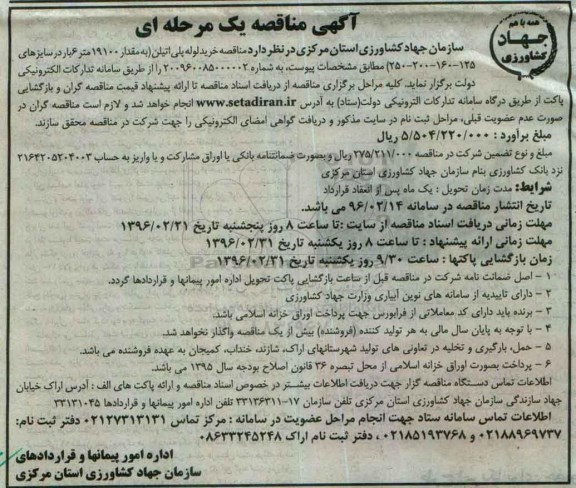 همه با هم
جهاد
کشاورزی
آگهی مناقصه یک مرحله ای
سازمان جهاد کشاورزی استان مرکزی در نظر دارد مناقصه خرید لوله پلی اتیلن (به مقدار ۱۹۱۰۰ متر ۶ بار در سایزهای
۱۲۵-۱۶۰-۲۰۰-۲۵۰) مطابق مشخصات پیوست، به شماره ۲۰۰۹۶۰۰۸۵۰۰۰۰۰۲ را از طریق سامانه تدارکات الکترونیکی
دولت برگزار نماید. کلیه مراحل برگزاری مناقصه از دریافت اسناد مناقصه تا ارائه پیشنهاد قیمت مناقصه گران و بازگشایی
پاکت از طریق درگاه سامانه تدارکات الکترونیکی دولت(ستاد) به آدرس www.setadiran.ir انجام خواهد شد و لازم است مناقصه گران در
صورت عدم عضویت قبلی، مراحل ثبت نام در سایت مذکور و دریافت گواهی امضای الکترونیکی را جهت شرکت در مناقصه محقق سازند.
مبلغ برآورد : ۵/۵۰۴/۲۲۰/۰۰۰ ریال
مبلغ و نوع تضمین شرکت در مناقصه ۲۷۵/۲۱۱/۰۰۰ ریال و بصورت ضمانتنامه بانکی یا اوراق مشارکت و یا واریز به حساب ۲۱۶۴۲۰۵۲۰۴۰۰۳
نزد بانک کشاورزی بنام سازمان جهاد کشاورزی استان مرکزی
شرایط: مدت زمان تحویل : یک ماه پس از انعقاد قرارداد
تاریخ انتشار مناقصه در سامانه ۹۶/۰۲/۱۴ می باشد.
مهلت زمانی دریافت اسناد مناقصه از سایت :تا ساعت ۸ روز پنجشنبه تاریخ ۱۳۹۶/۰۲/۲۱
مهلت زمانی ارائه پیشنهاد : تا ساعت ۸ روز یکشنبه تاریخ ۱۳۹۶/۰۲/۳۱
زمان بازگشایی پاکتها : ساعت ۹/۳۰ روز یکشنبه تاریخ ۱۳۹۶/۰۲/۳۱
۱ - اصل ضمانت نامه شرکت در مناقصه قبل از ساعت بازگشایی پاکت تحویل اداره امور پیمانها و قراردادها گردد.
۲ - دارای تاییدیه از سامانه های نوین آبیاری وزارت جهاد کشاورزی
۳ - برنده باید دارای کد معاملاتی از فرابورس جهت پرداخت اوراق خزانه اسلامی باشد.
۴ - با توجه به پایان سال مالی به هر تولید کننده (فروشنده) بیش از یک مناقصه واگذار نخواهد شد.
۵ - حمل، بارگیری و تخلیه در تعاونی های تولید شهرستانهای اراک، شازند، خنداب، کمیجان به عهده فروشنده می باشد.
۶ - پرداخت بصورت اوراق خزانه اسلامی از محل تبصره ۳۶ قانون اصلاح بودجه سال ۱۳۹۵ می باشد.
اطلاعات تماس دستگاه مناقصه گزار جهت دریافت اطلاعات بیشتر در خصوص اسناد مناقصه و ارائه پاکت های الف : آدرس اراک خیابان
جهاد سازندگی سازمان جهاد کشاورزی استان مرکزی تلفن سازمان ۱۷-۳۳۱۳۶۳۱۱ تلفن اداره امور پیمانها و قراردادها ۳۳۱۳۱۰۴۵
اطلاعات تماس سامانه ستاد جهت انجام مراحل عضویت در سامانه : مرکز تماس ۰۲۱۲۷۳۱۳۱۳۱ دفتر ثبت نام:
۰۲۱۸۸۹۶۹۷۳۷ و ۰۲۱۸۵۱۹۳۷۶۸ ، دفتر ثبت نام اراک ۰۸۶۳۳۲۴۵۲۴۸
اداره امور پیمانها و قراردادهای
سازمان جهاد کشاورزی استان مرکزی